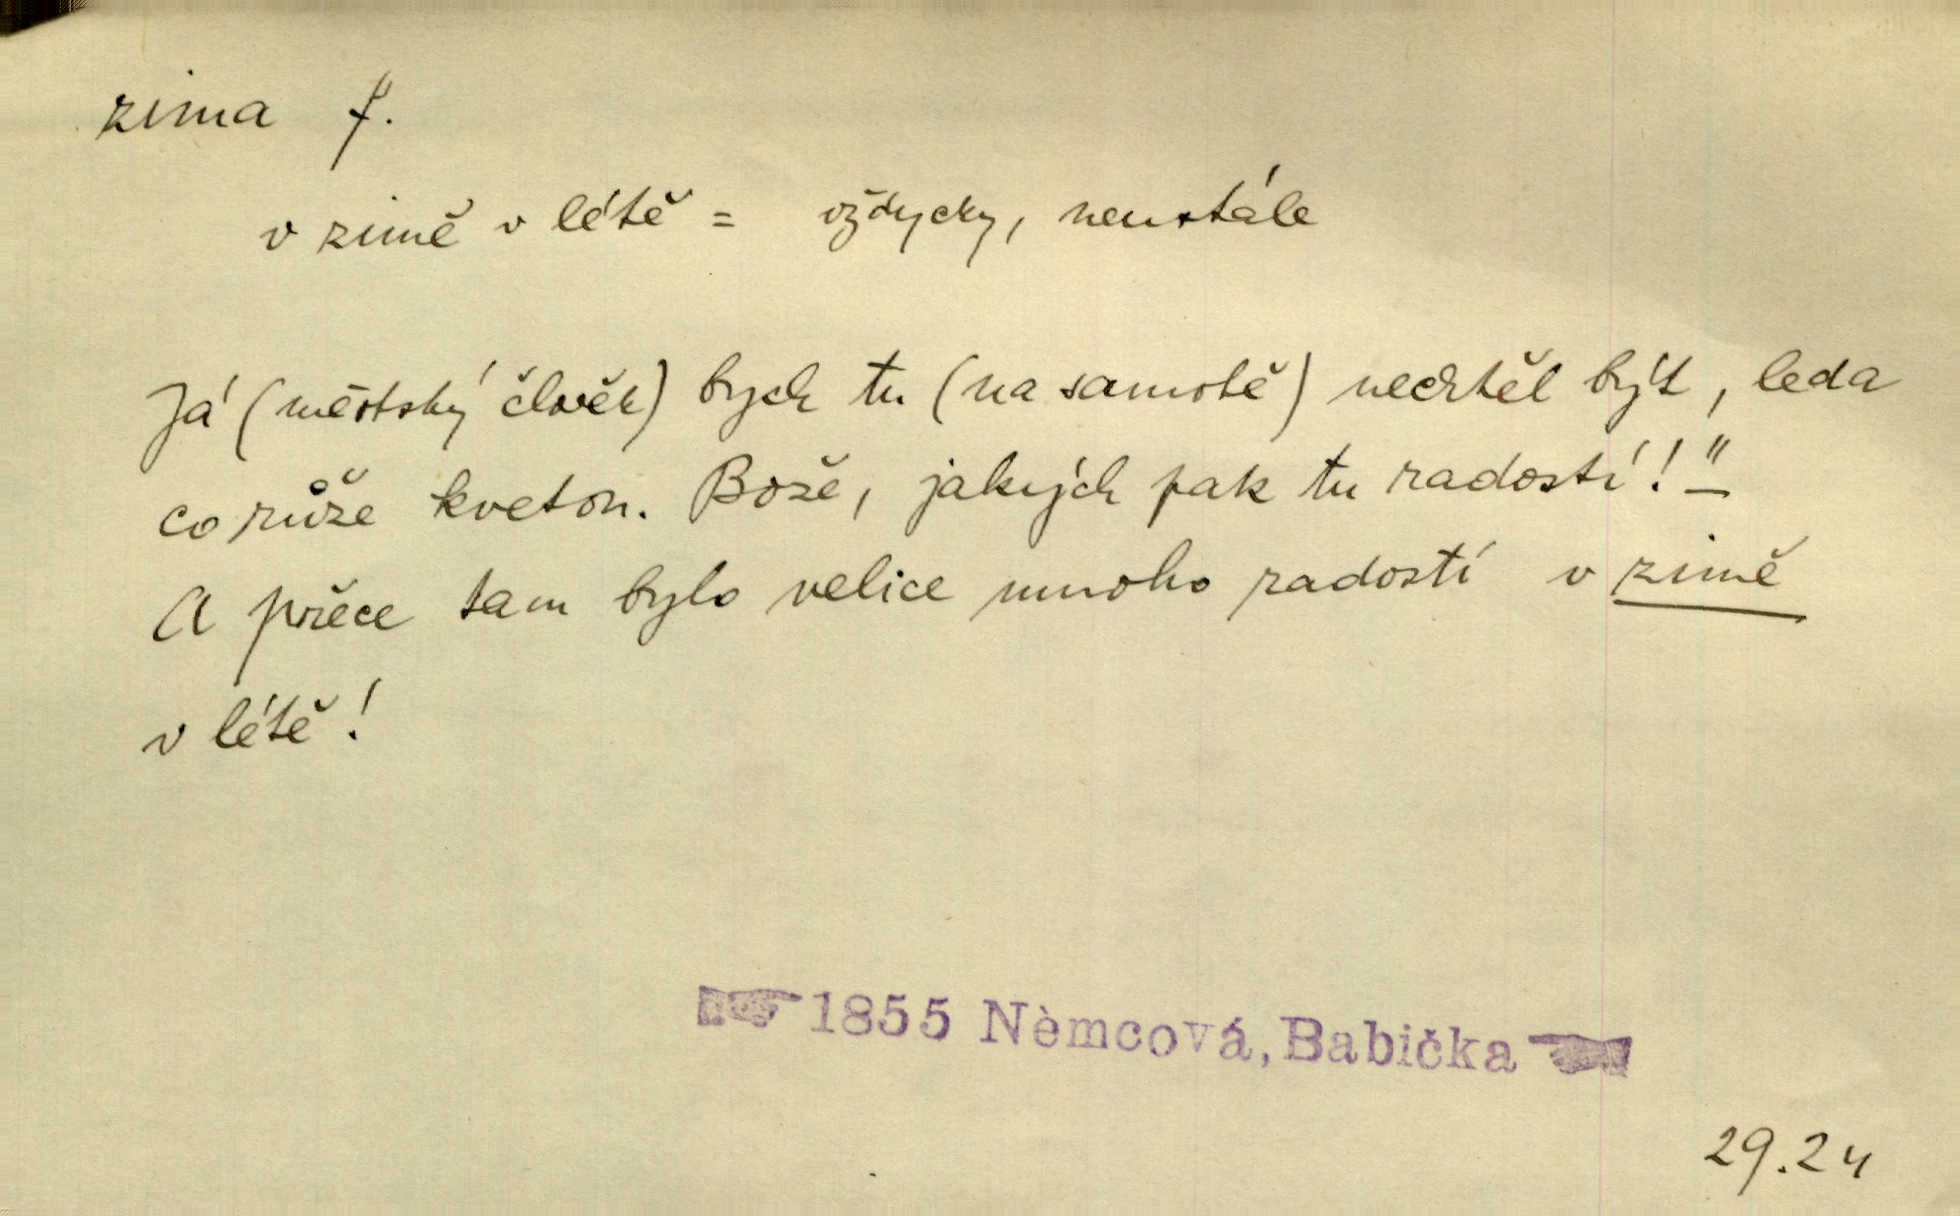 zima f.
v zimě v létě = vždycky, neustále
Já (městský člověk) bych tu (na samotě) nechtěl být, leda
co růže kvetou. Bože, jakých pak tu radostí!" —
A přece tam bylo velice mnoho radostí v zimě
v létě!
1855 Němcová, Babička
29.24